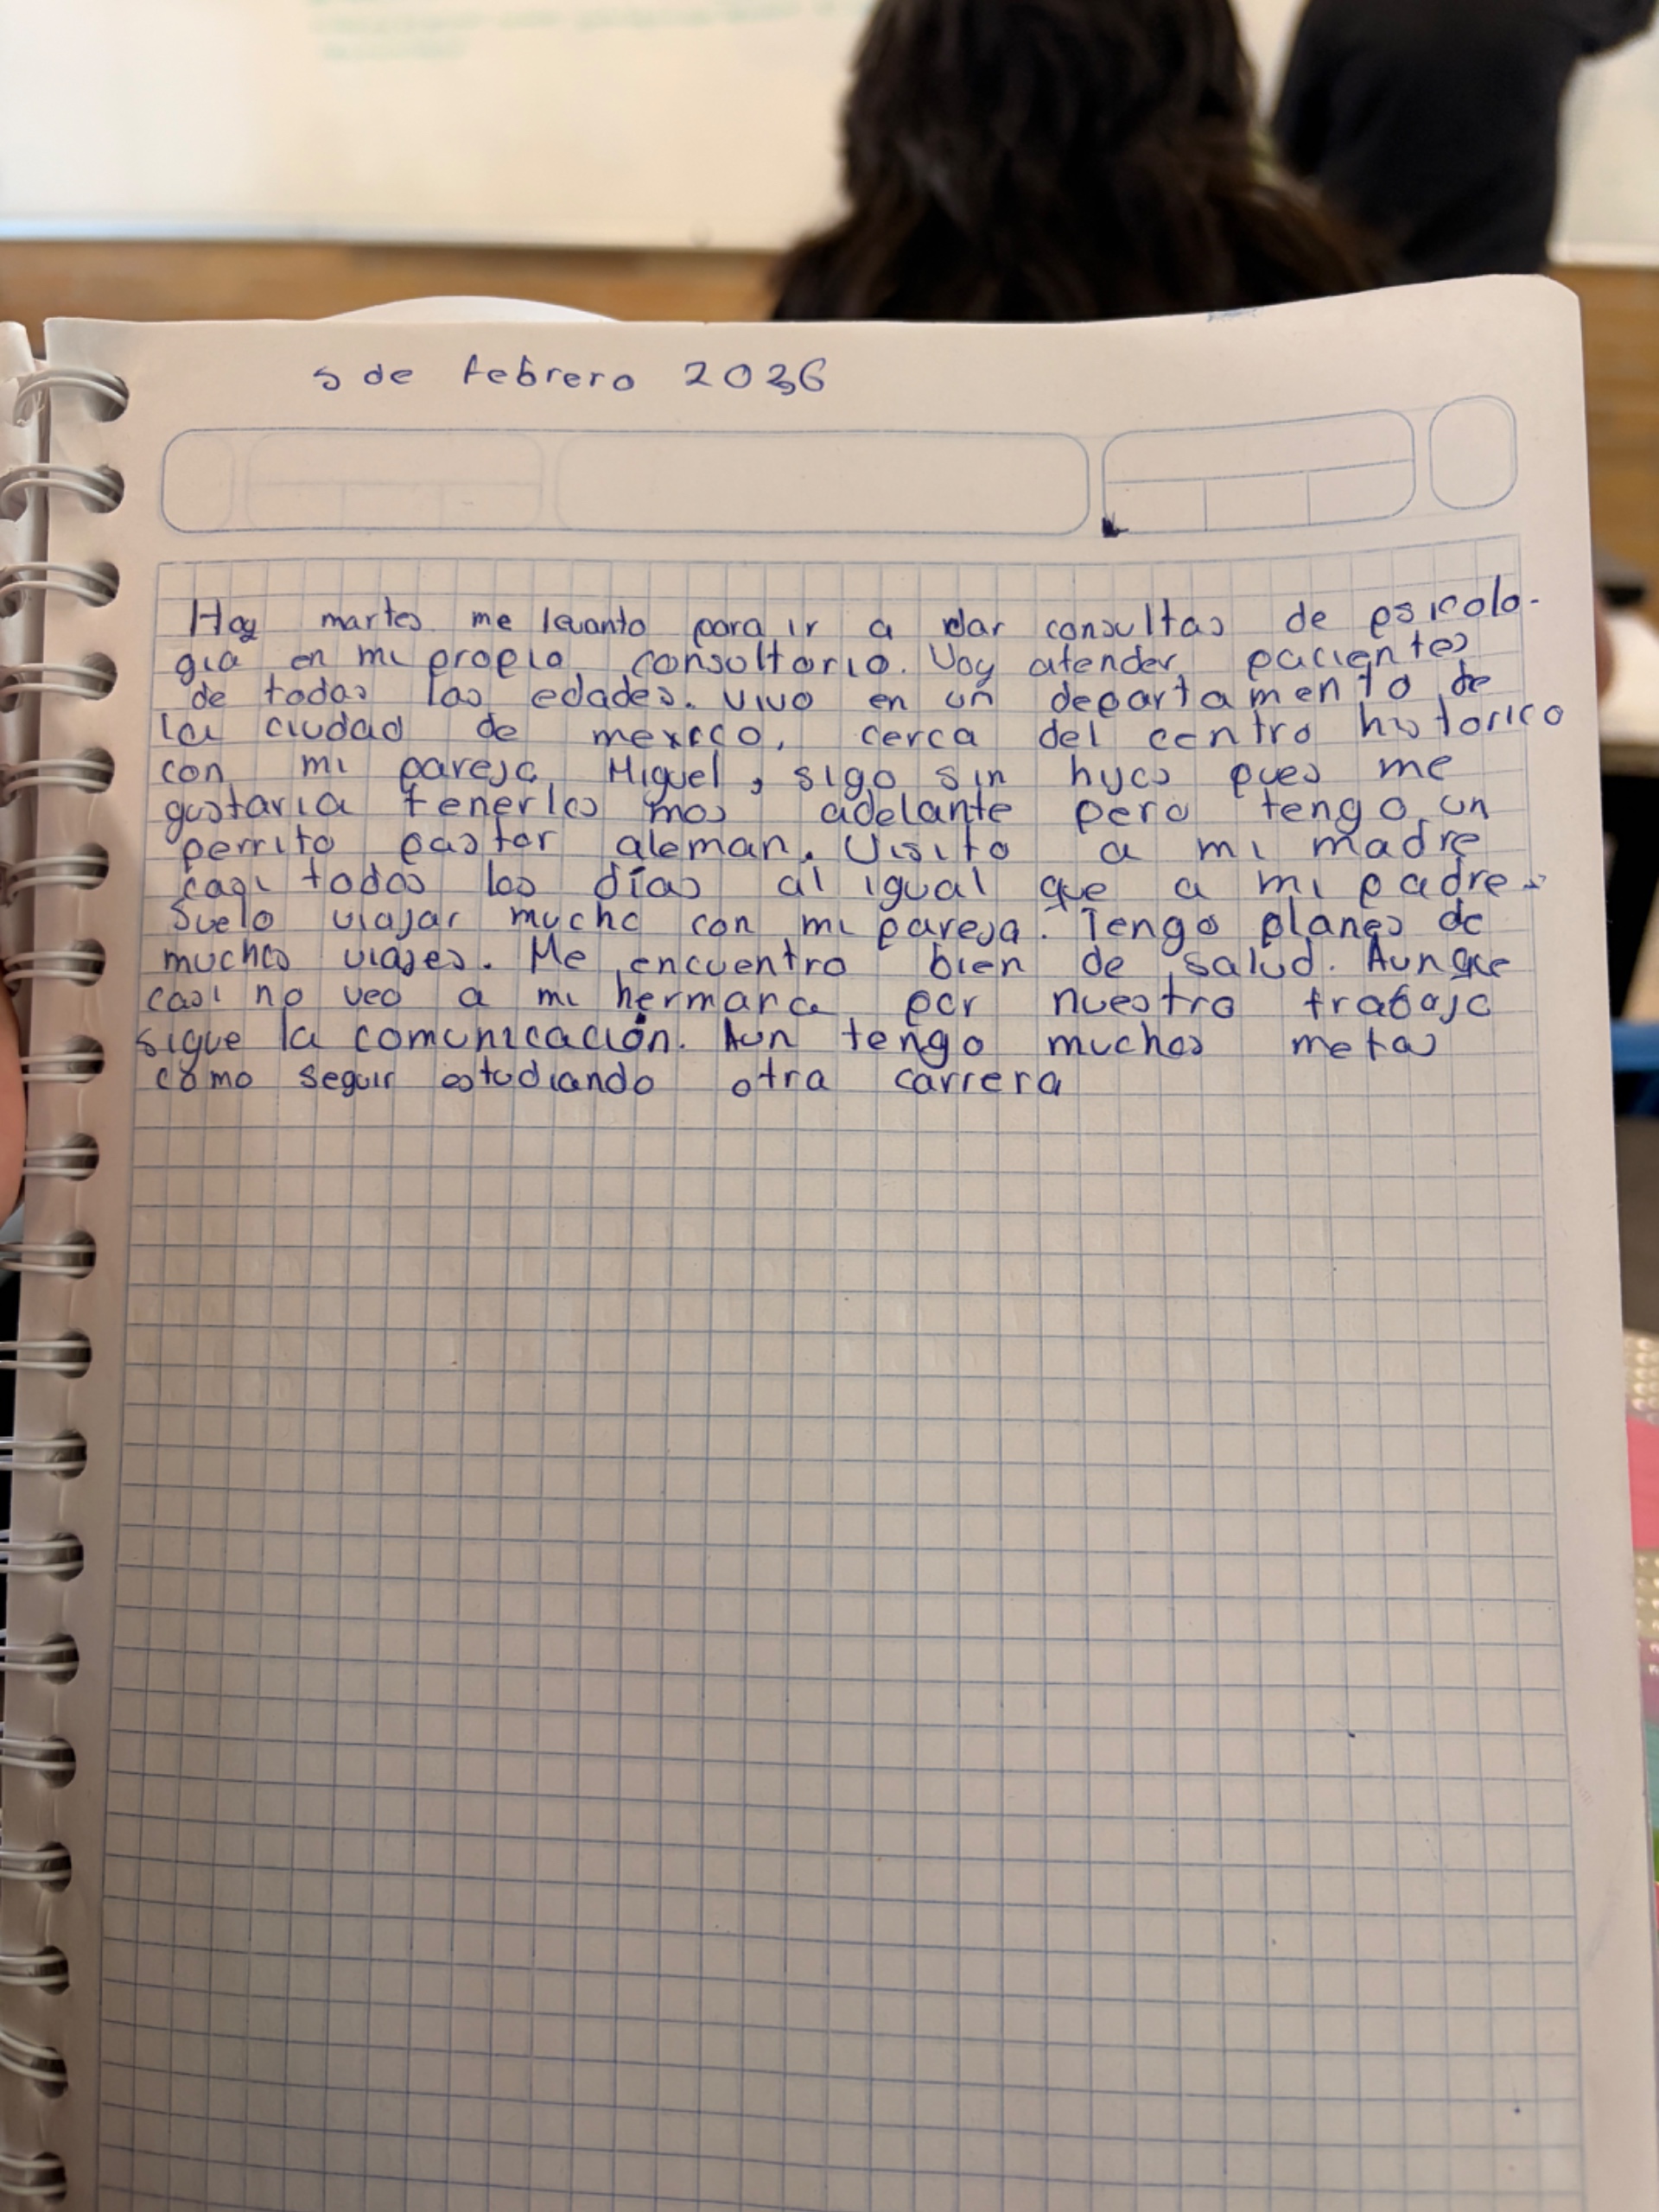 5 de febrero 2036
Hoy martes me levanto para ir a dar consultas de psicolo-
gia en mi propio consultorio. Voy atender pacientes
de todas las edades. vivo en un departamento de
la ciudad de mexico, cerca del centro historico
con mi pareja Miguel, sigo sin hijos pues me
gustaria tenerlos mas adelante pero tengo un
perrito pastor aleman. Visito a mi madre
casi todos los días al igual que a mi padre.
Suelo viajar mucho con mi pareja. Tengo planes de
muchos viajes. Me encuentro bien de salud. Aunque
casi no veo a mi hermana por nuestro trabajo
sigue la comunicación. Aun tengo muchas metas
como seguir estudiando otra carrera